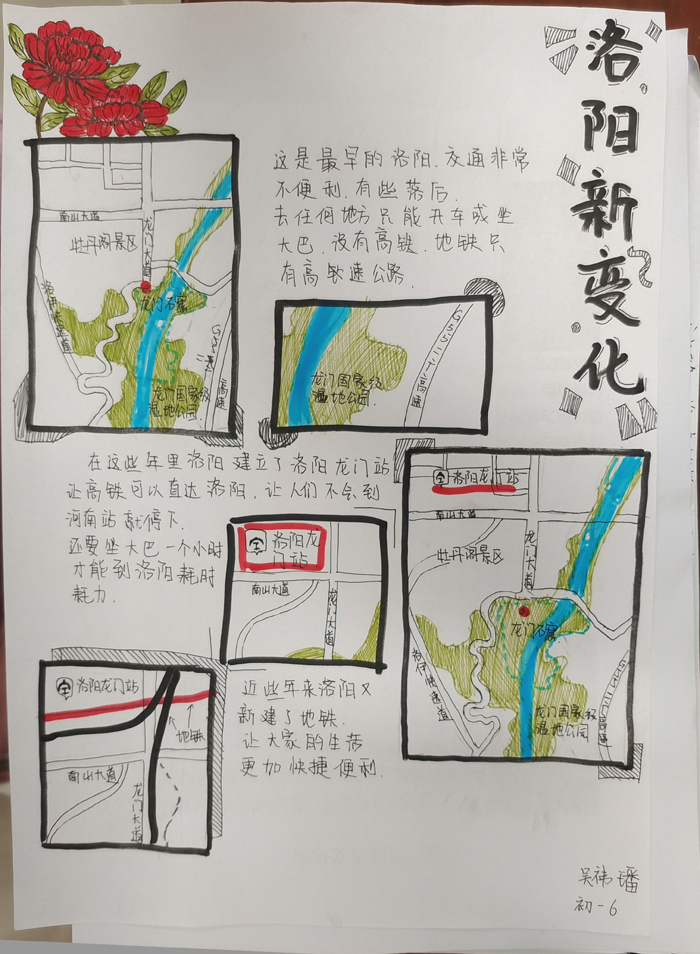 洛阳新变化
这是最早的洛阳.交通非常
不便利.有些落后.
去任何地方只能开车或坐
大巴.没有高铁.地铁只
有高速公路.
南山大道
牡丹阁景区
龙门大道
龙门石窟
洛伊快速道
G55二广高速
龙门国家级
湿地公园
龙门国家级
湿地公园
G55二广高速
在这些年里洛阳建立了洛阳龙门站
让高铁可以直达洛阳,让人们不会到
河南站就停下.
还要坐大巴一个小时
才能到洛阳耗时
耗力.
洛阳龙
门站
南山大道
龙门大道
洛阳龙门站
南山大道
牡丹阁景区
龙门大道
龙门石窟
洛伊快速道
龙门国家级
湿地公园
G55二广高速
近些年来洛阳又
新建了地铁.
让大家的生活
更加快捷便利.
洛阳龙门站
地铁
南山大道
龙门大道
吴祎璠
初一6